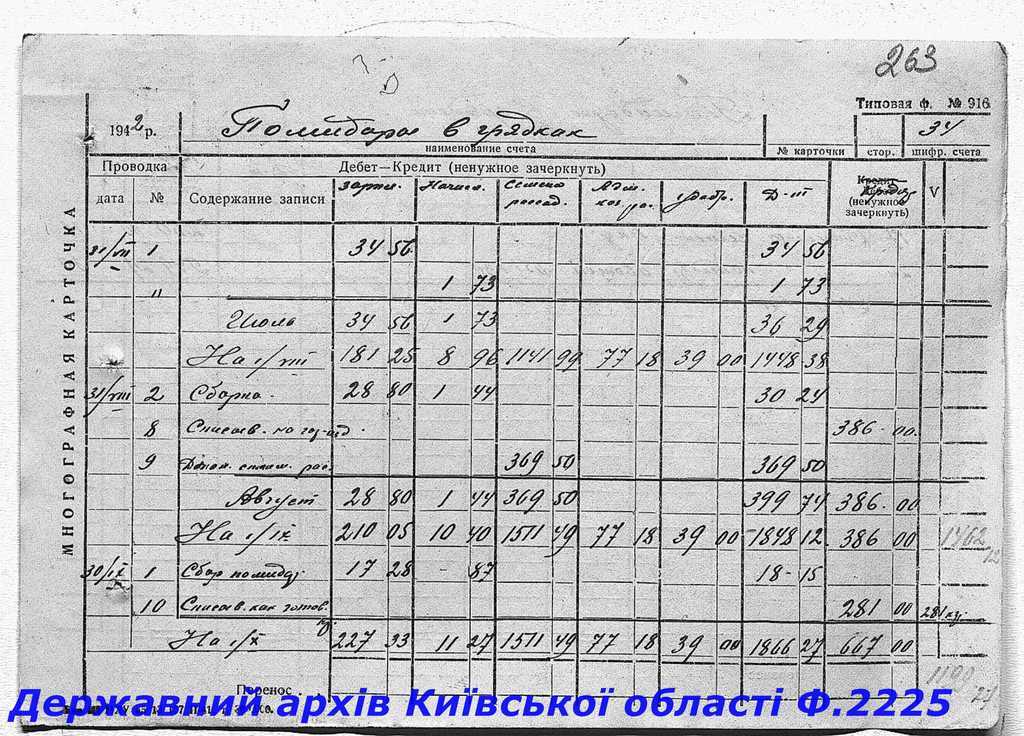 263
Типовая ф. № 916
1942 р. Помидоры в грядках 34
наименование счета № карточки стор. шифр. счета
Проводка Дебет—Кредит (ненужное зачеркнуть) Кредит
дата № Содержание записи зарпл. Начисл. Семена рассад. удобр. Д-т (ненужное зачеркнуть) V
МНОГОГРАФНАЯ КАРТОЧКА
31/VII 1 34 56 34 56
" 1 73 1 73
Июль 34 56 1 73 36 29
На 1/VIII 181 25 8 96 1141 99 77 18 39 00 1448 38
31/VIII 2 Сборка 28 80 1 44 30 24
8 Списыв. на 386 00
9 369 50 369 50
Август 28 80 1 44 369 50 399 74 386 00
На 1/IX 210 05 10 40 1511 49 77 18 39 00 1848 12 386 00 1462 12
30/IX 1 Сбор помид. 17 28 87 18-15
10 Списыв. как готов. 281 00 281 кг.
На 1/X 227 33 11 27 1511 49 77 18 39 00 1866 27 667 00
Перенос 1199 27
Державний архів Київської області Ф.2225